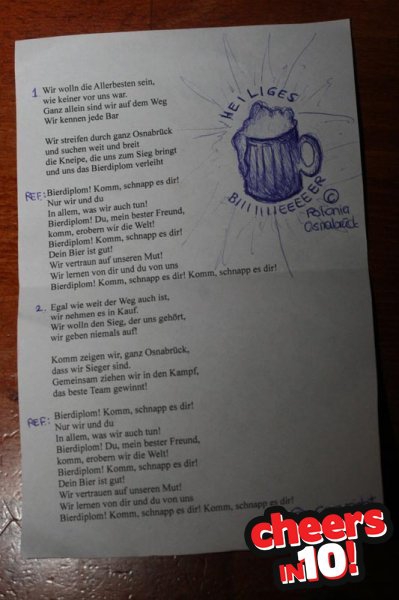 1 Wir wolln die Allerbesten sein,
wie keiner vor uns war.
Ganz allein sind wir auf dem Weg
Wir kennen jede Bar
Wir streifen durch ganz Osnabrück
und suchen weit und breit
die Kneipe, die uns zum Sieg bringt
und uns das Bierdiplom verleiht
REF.: Bierdiplom! Komm, schnapp es dir!
Nur wir und du
In allem, was wir auch tun!
Bierdiplom! Du, mein bester Freund,
komm, erobern wir die Welt!
Bierdiplom! Komm, schnapp es dir!
Dein Bier ist gut!
Wir vertraun auf unseren Mut!
Wir lernen von dir und du von uns
Bierdiplom! Komm, schnapp es dir! Komm, schnapp es dir!
2. Egal wie weit der Weg auch ist,
wir nehmen es in Kauf.
Wir wolln den Sieg, der uns gehört,
wir geben niemals auf!
Komm zeigen wir, ganz Osnabrück,
dass wir Sieger sind.
Gemeinsam ziehen wir in den Kampf,
das beste Team gewinnt!
REF.: Bierdiplom! Komm, schnapp es dir!
Nur wir und du
In allem, was wir auch tun!
Bierdiplom! Du, mein bester Freund,
komm, erobern wir die Welt!
Bierdiplom! Komm, schnapp es dir!
Dein Bier ist gut!
Wir vertrauen auf unseren Mut!
Wir lernen von dir und du von uns
Bierdiplom! Komm, schnapp es dir! Komm, schnapp es dir!
HEILIGES
BIIIIIIEEEEEER
©
Polonia
Osnabrück
cheers
IN 10!